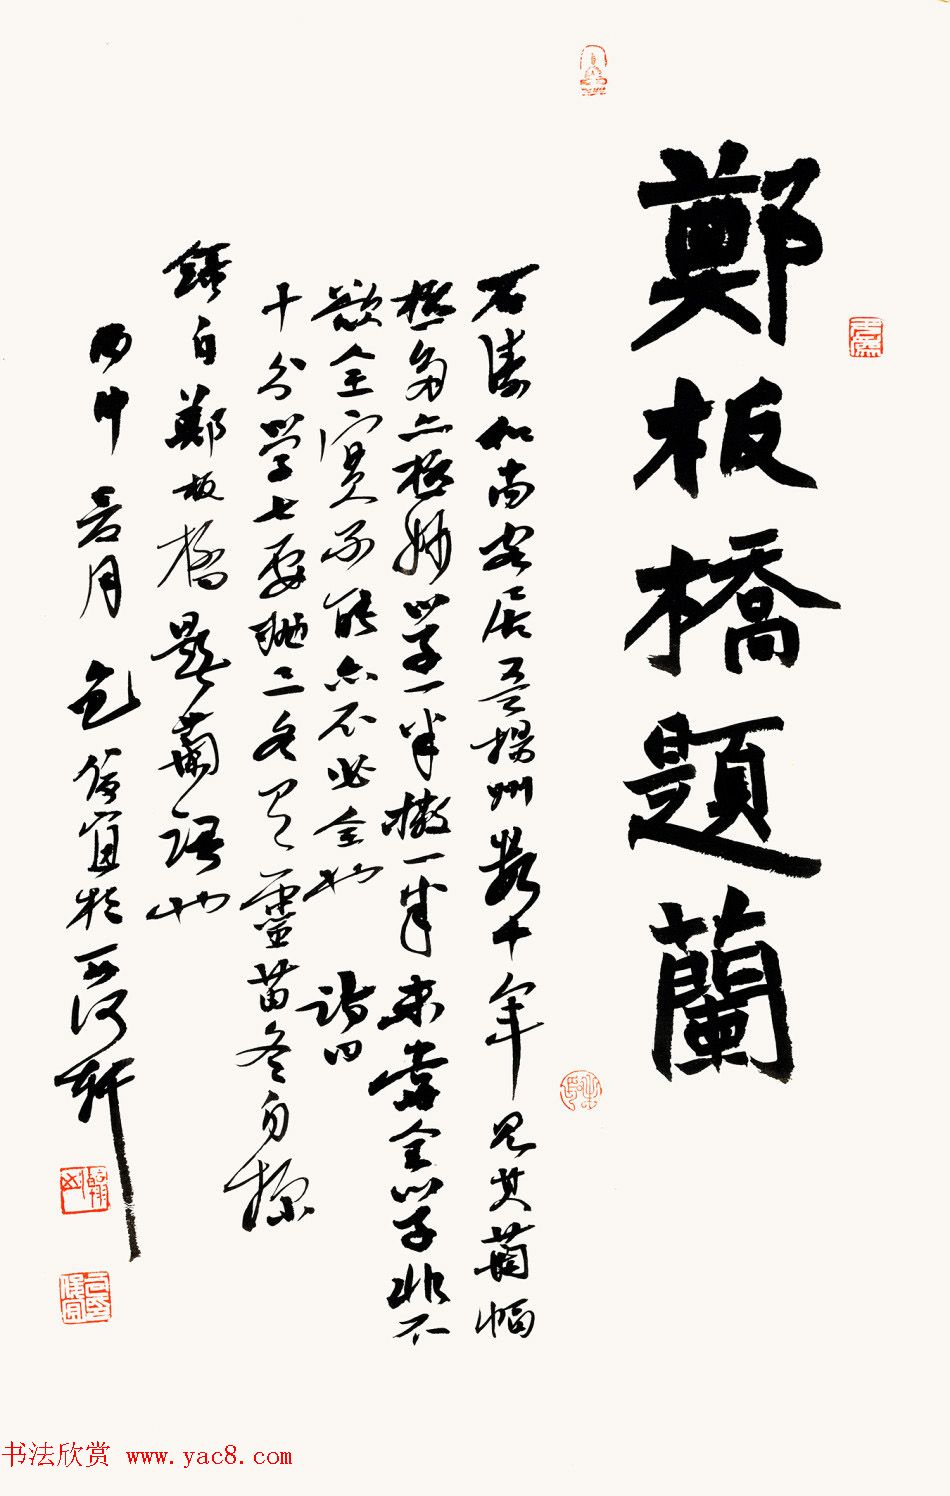 鄭板橋題蘭
石濤和尚客居吾揚州數十年見其蘭幅
極多亦極妙學一半撇一半未嘗全學非不
欲全實不能亦不必全也 詩曰
十分學七要拋三各有靈苗各自探
錄自鄭板橋題蘭語也
丙申 月 包俊宜於 河軒
书法欣赏 www.yac8.com